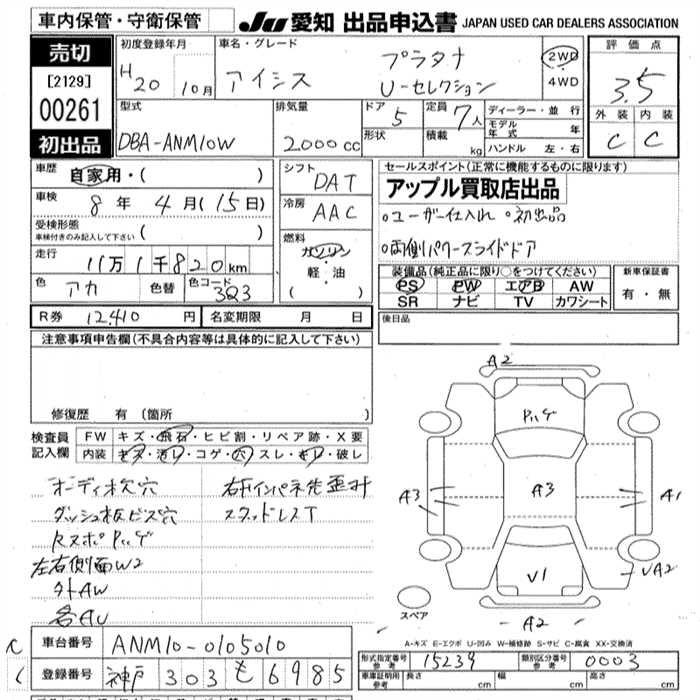 車内保管・守衛保管
JU 愛知 出品申込書 JAPAN USED CAR DEALERS ASSOCIATION
売切
[2129]
00261
初出品
初度登録年月
H20 10月
車名・グレード
アイシス
プラタナ
U-セレクション
2WD
4WD
評価点
3.5
外装 内装
C C
型式
DBA-ANM10W
排気量
2000cc
ドア 5
形状
定員 7人
積載 kg
ディーラー・並行
モデル年式 年
ハンドル 左・右
車歴 自家用・( )
車検 8年 4月(15日)
受検形態
車検付きのみ記入して下さい ( )
走行 11万1千820km
色 アカ 色替 色コード 3Q3
シフト DAT
冷房 AAC
燃料 ガソリン・軽・油
( )
セールスポイント(正常に機能するものに限ります)
アップル買取店出品
○ユーザー仕入れ ○初出品
○両側パワースライドドア
装備品(純正品に限り○をつけてください)
PS PW エアB AW
SR ナビ TV カワシート
新車保証書
有・無
R券 12,410円 名変期限 月 日
後日品
注意事項申告欄(不具合内容等は具体的に記入して下さい)
修復歴 有 [箇所 ]
検査員記入欄
FW キズ・飛石・ヒビ割・リペア跡・X要
内装 キズ・汚レ・コゲ・穴・スレ・キレ・破レ
オーディオ欠穴
ダッシュ板ビス穴
RスポPハゲ
左右側面W2
外AW
各AU
スタッドレスT
A2
Pハゲ
A3
A3
A1
V1
VA2
A2
スペア
A-キズ E-エクボ U-凹み W-補修跡 S-サビ C-腐食 XX-交換済
車台番号 ANM10-0105010
登録番号 神戸 303 も 6985
型式指定番号 参考 15239
類別区分番号 参考 0003
車庫証明用 参考 長さ cm 幅 cm 高さ cm